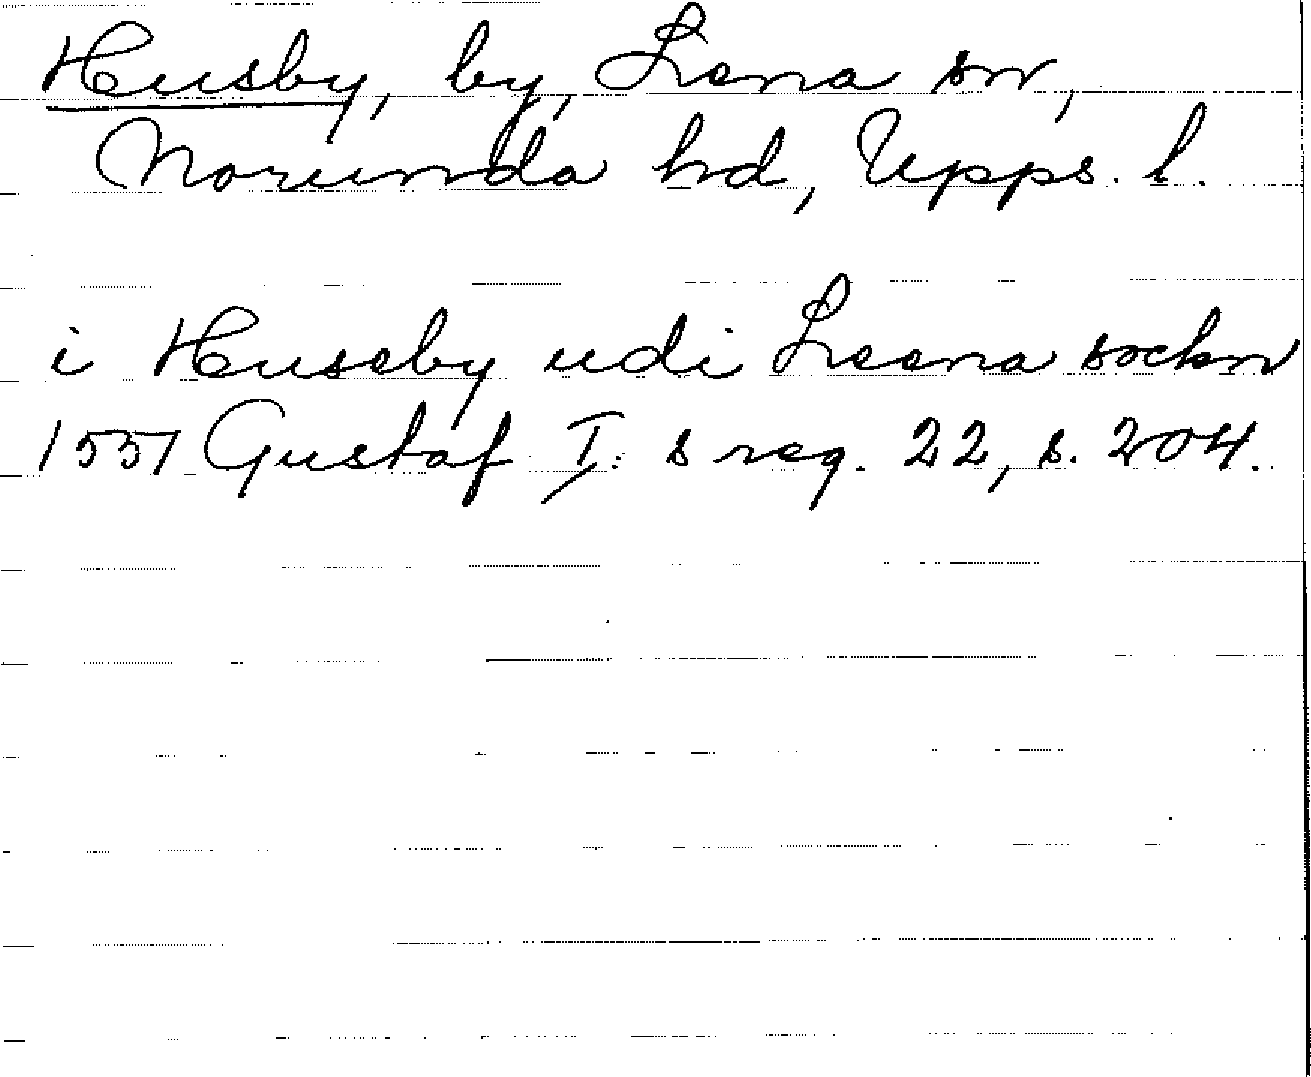 Husby, by, Lena sn,
Norunda hd, Upps. l.
i Huseby udi Leena sockn
1551 Gustaf I: s reg. 22, s. 204.